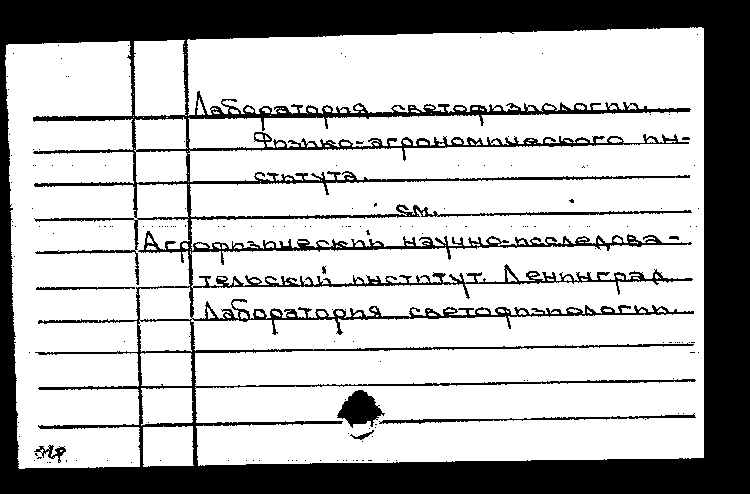 Лаборатория светофизиологии.
Физико-агрономического ин-
ститута.
см.
Агрофизический научно-исследова-
тельский институт. Ленинград.
Лаборатория светофизиологии.